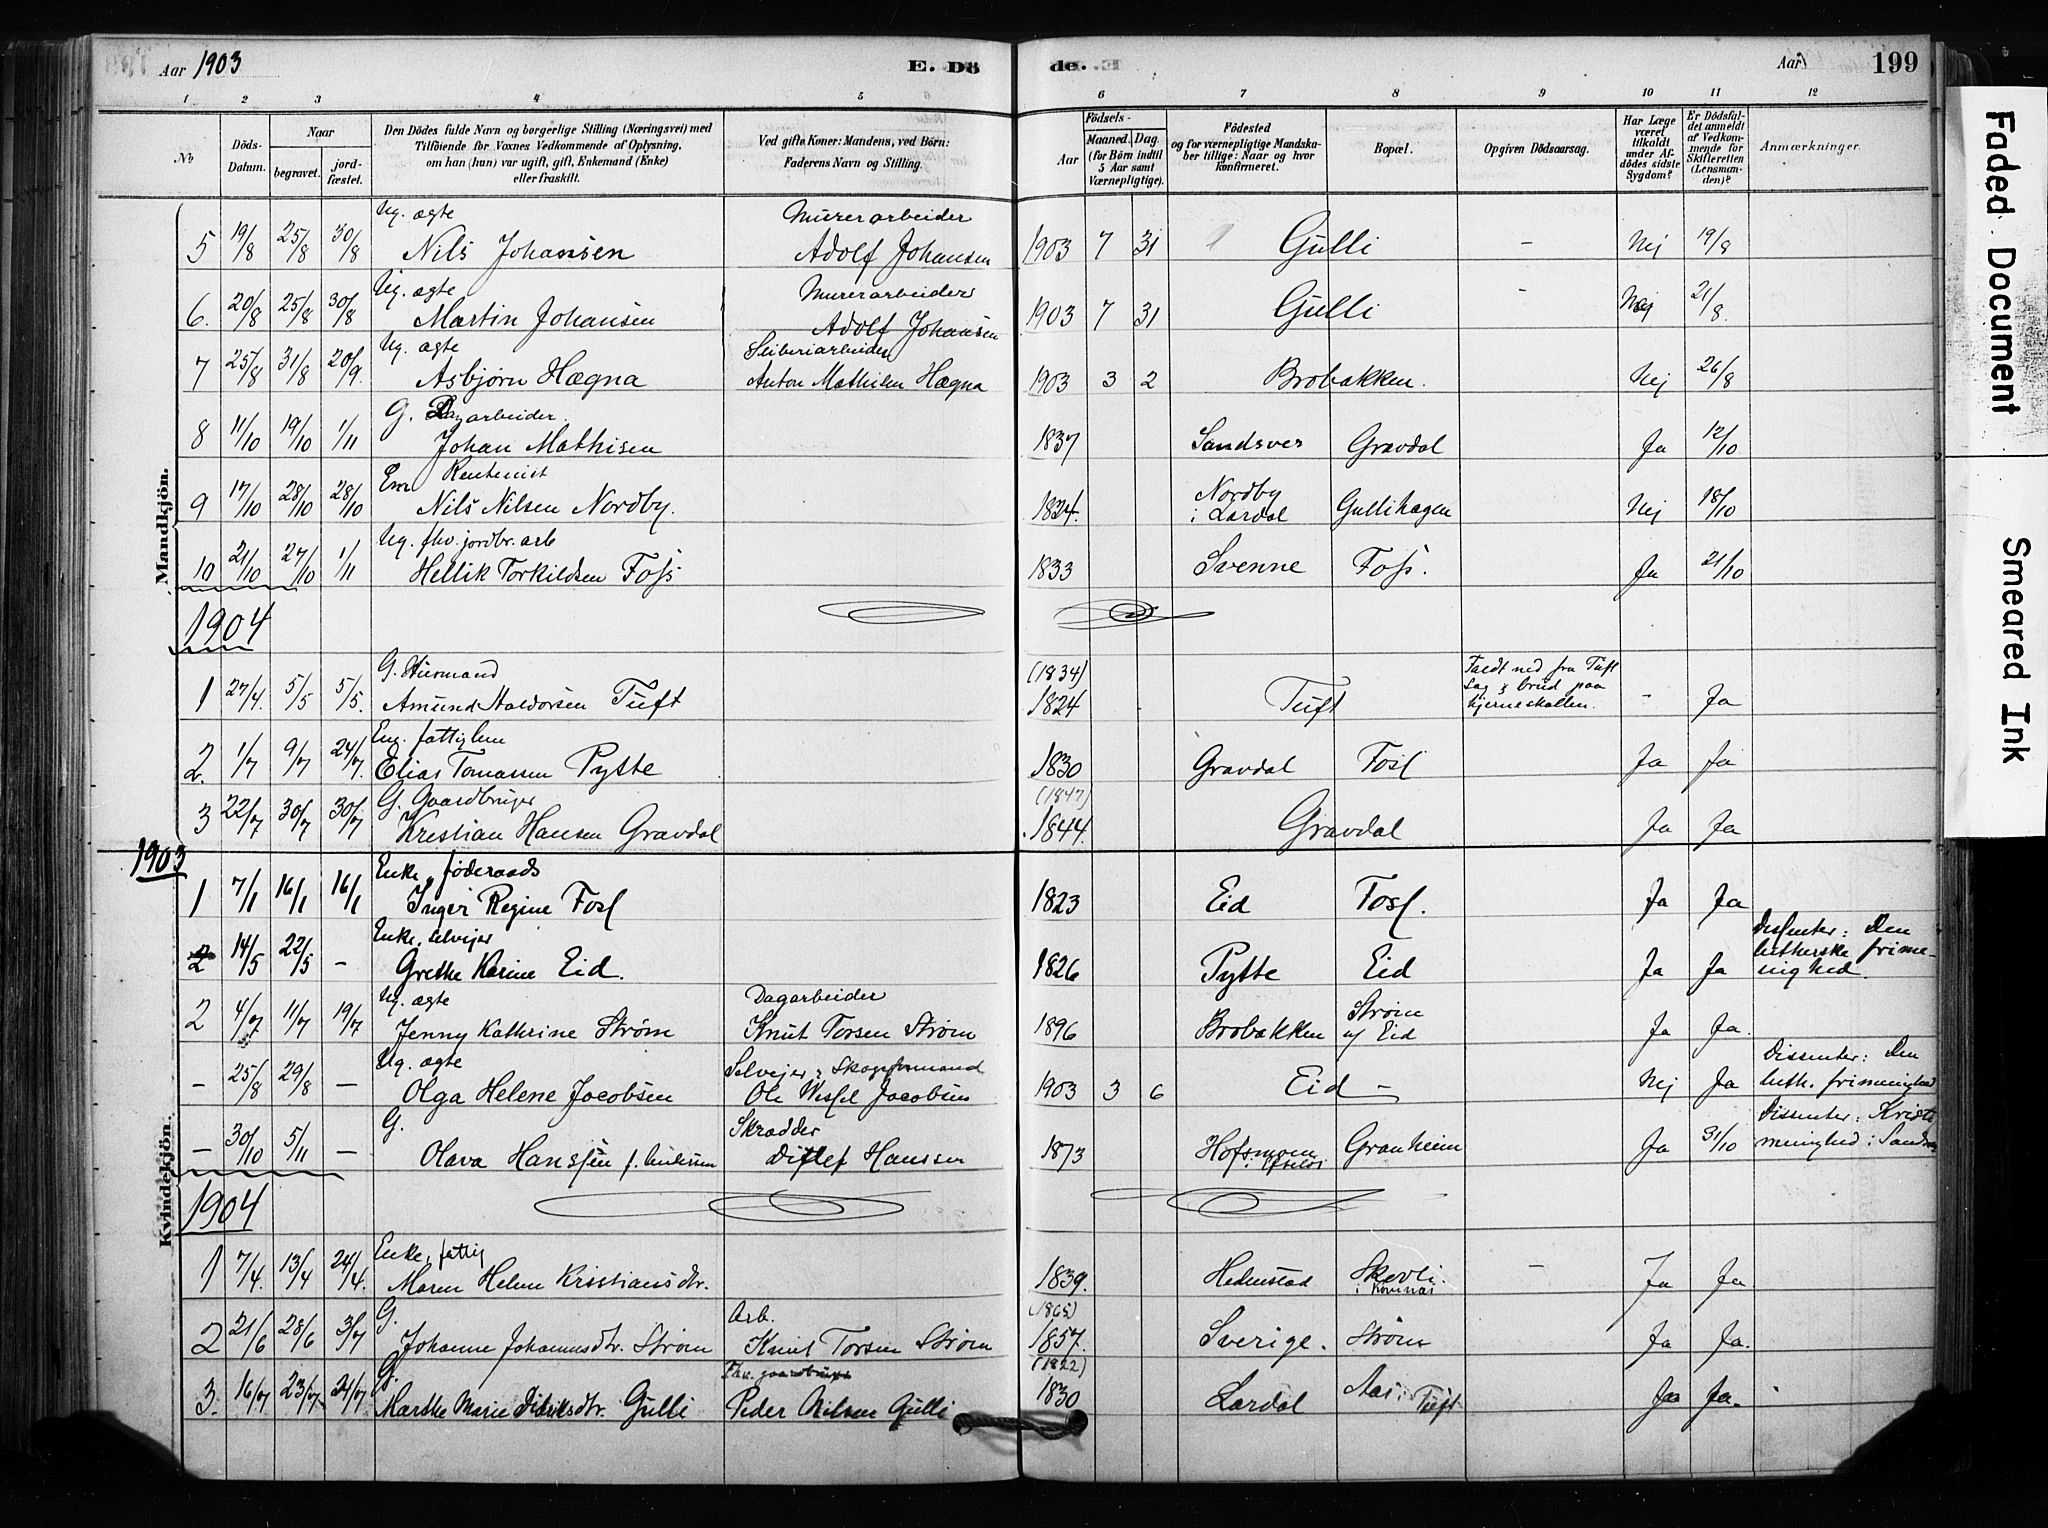 Aar 1903 E. Dö de. Aar 199
1 2 3 4 5 6 7 8 9 10 11 12
No
Döds-Datum.
Naar
begravet.
jord-fæstet.
Den Dödes fulde Navn og borgerlige Stilling (Næringsvei) med
Tilföiende for Voxnes Vedkommende af Oplysning,
om han (hun) var ugift, gift, Enkemand (Enke)
eller fraskilt.
Ved gifte Koner: Mandens, ved Börn:
Faderens Navn og Stilling.
Födsels-
Aar
Maaned. Dag.
(for Börn indtil
5 Aar samt
Værnepligtige).
Födested
og for værnepligtige Mandska-
ber tillige: Naar og hvor
konfirmeret.
Bopæl.
Opgiven Dödsaarsag.
Har Læge
været
tilkaldt
under Af-
dödes sidste
Sygdom?
Er Dödsfal-
det anmeldt
af Vedkom-
mende for
Skifteretten
(Lensman-
den)?
Anmærkninger.
Mandkjön.
Ug. ægte Murerarbeider
5 19/8 25/8 30/8 Nils Johansen Adolf Johansen 1903 7 31 Gulli - Nej 19/8
Ug. ægte Murerarbeider
6. 20/8 25/8 30/8 Martin Johansen Adolf Johansen 1903 7 31 Gulli - Nej 21/8.
Ug. ægte Sliberiarbeider
7 25/8 31/8 20/9. Asbjørn Hægna Anton Mathisen Hægna 1903 3 2 Brobakken. Nej 26/8
G. Dagarbeider.
8 11/10 19/10 1/11 Johan Mathisen 1837 Sandsver Gravdal Ja 12/10
Em Rentenist
9 17/10 28/10 28/10 Nils Nilsen Nordby. 1824. Nordby i Lardal Gullihagen Nej 18/10
Ug. fhv. jordbr. arb
10 21/10 27/10 1/11 Hellik Torkildsen Foss 1833 Svenne Foss. Ja 21/10
1904
G. Stiirmand (1834)
1 27/4. 5/5 5/5. Amund Haldorsen Tuft 1824 Tuft Faldt ned fra Tuft Sag & brud paa hjerneskallen. - Ja
Em. fattiglem
2. 1/7 9/7 24/7. Elias Tomassen Pytte 1830 Gravdal Foss Ja Ja
G. Gaardbruger (1847)
3 22/7 30/7 30/7 Kristian Hansen Gravdal 1844. Gravdal Ja Ja
1903
Kvindekjön.
Enke, føderaads
1 7/1 16/1 16/1 Inger Regine Foss 1823 Eid Foss. Ja Ja
Enke, selvejer
2 14/5 22/5 - Grethe Karine Eid. 1826 Pytte Eid Ja Ja Dissenter: Den lutherske frime-nighed.
Ug. ægte Dagarbeider
2 4/7 11/7 19/7 Jenny Kathrine Strøm Knut Torsen Strøm 1896 Brobakken Strøm u/ Eid Ja Ja.
Ug. ægte Selvejer & Skogsformand
- 25/8 29/8 - Olga Helene Jacobsen Ole Wessel Jacobsen 1903 3 6 Eid - Nej Ja Dissenter: Den luth. frimenighed
G. Skrædder
- 30/10 5/11 - Olava Hanssen Ditlef Hanssen 1873 Hofsmoen Granheim Ja 31/10 Dissenter: Kristi menighed i
1904
Enke, fattig
1 7/4. 13/4 24/4. Maren Helene Kristiansdtr. 1839. Hedenstad Skovli. - Ja Ja
G. Arb. (1865)
2 21/6 28/6 3/7 Johanne Johannesdtr. Strøm Knut Torsen Strøm 1857. Sverige. Strøm Ja Ja.
G. Fhv. gaardbruger (1822)
3. 16/7 23/7 24/7 Marthe Marie Didriksdtr. Gulli Peder Nilsen Gulli 1830 Lardal Aas i Tuft Ja Ja.
Faded Document
Smeared Ink